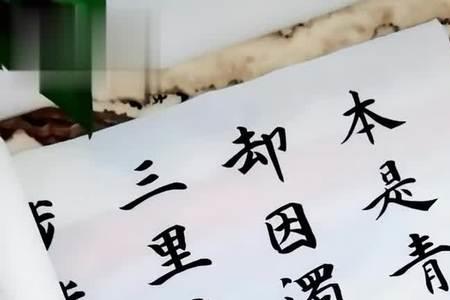 本是青
却因濁
三里